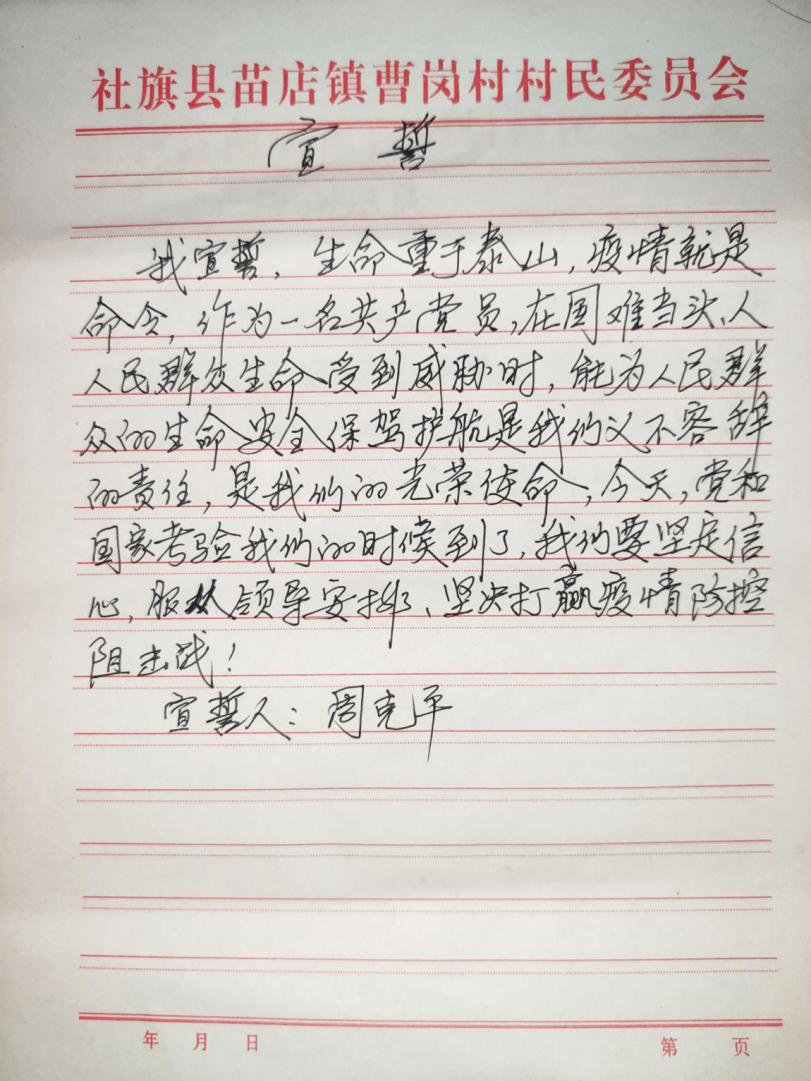 社旗县苗店镇曹岗村村民委员会
宣誓
我宣誓，生命重于泰山，疫情就是
命令，作为一名共产党员，在国难当头、人
人民群众生命受到威胁时，能为人民群
众的生命安全保驾护航是我们义不容辞
的责任，是我们的光荣使命，今天，党和
国家考验我们的时候到了，我们要坚定信
心，服从领导安排、坚决打赢疫情防控
阻击战！
宣誓人：周克平
年 月 日 第 页